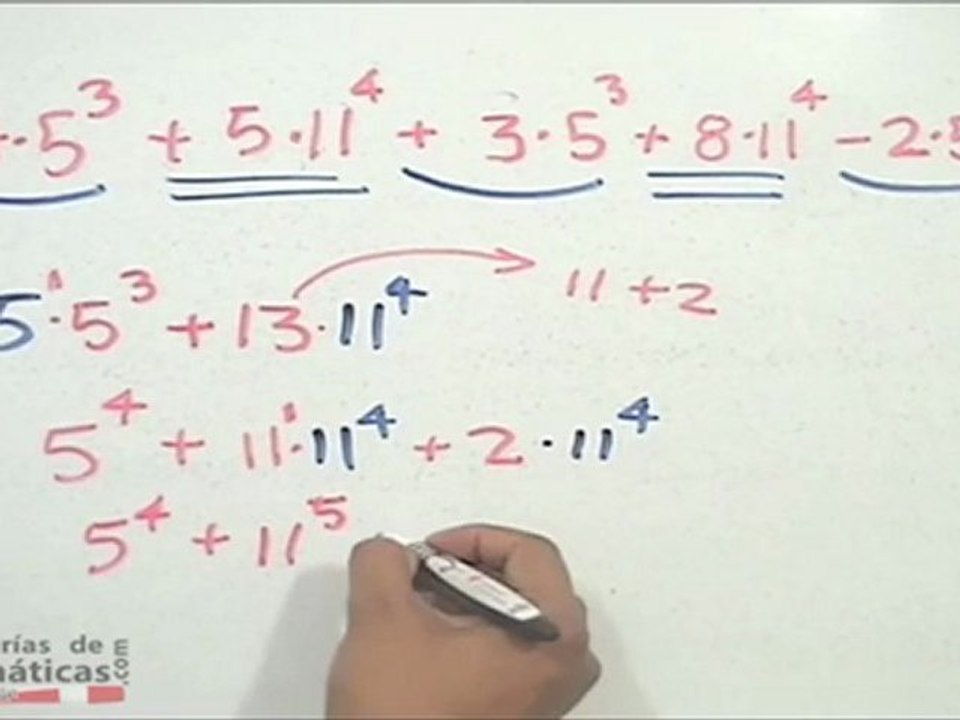 ·5³ + 5·11⁴ + 3·5³ + 8·11⁴ - 2·
5¹·5³ + 13·11⁴ 11 + 2
5⁴ + 11¹·11⁴ + 2·11⁴
5⁴ + 11⁵
rías de
máticas.com